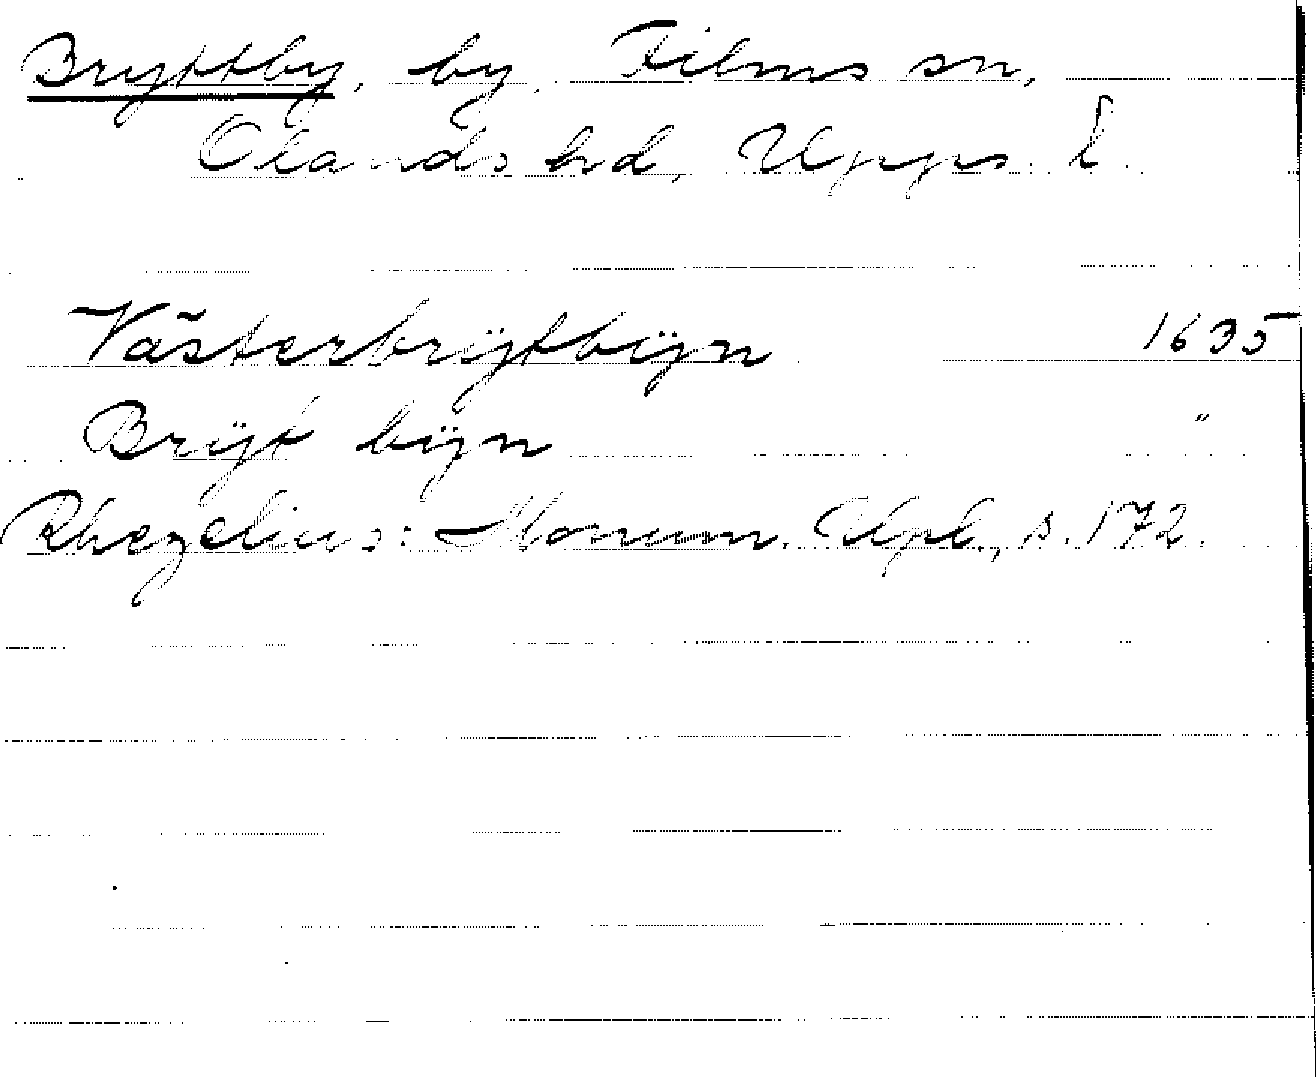 Bryttby, by, Films sn,
Olands hd, Upps. l.
Västerbrÿtbÿn 1635
Brÿt bÿn "
Rhezelius: Monum. Upl., s. 172.